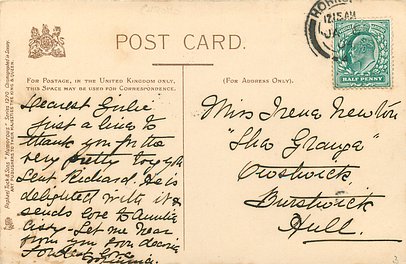 POST CARD.
FOR POSTAGE, IN THE UNITED KINGDOM ONLY,
THIS SPACE MAY BE USED FOR CORRESPONDENCE.
(FOR ADDRESS ONLY).
Dearest
Just a line to
thank you for the
very pretty toy you
sent Richard. He is
delighted with it &
sends love to Auntie
Cissy - Let me hear
from you soon dearie
Fondest love
12.15 AM
JA
HALF PENNY
Miss Irene Newton
"The Grange"
Burstwick
Hull.
Raphael Tuck & Sons'